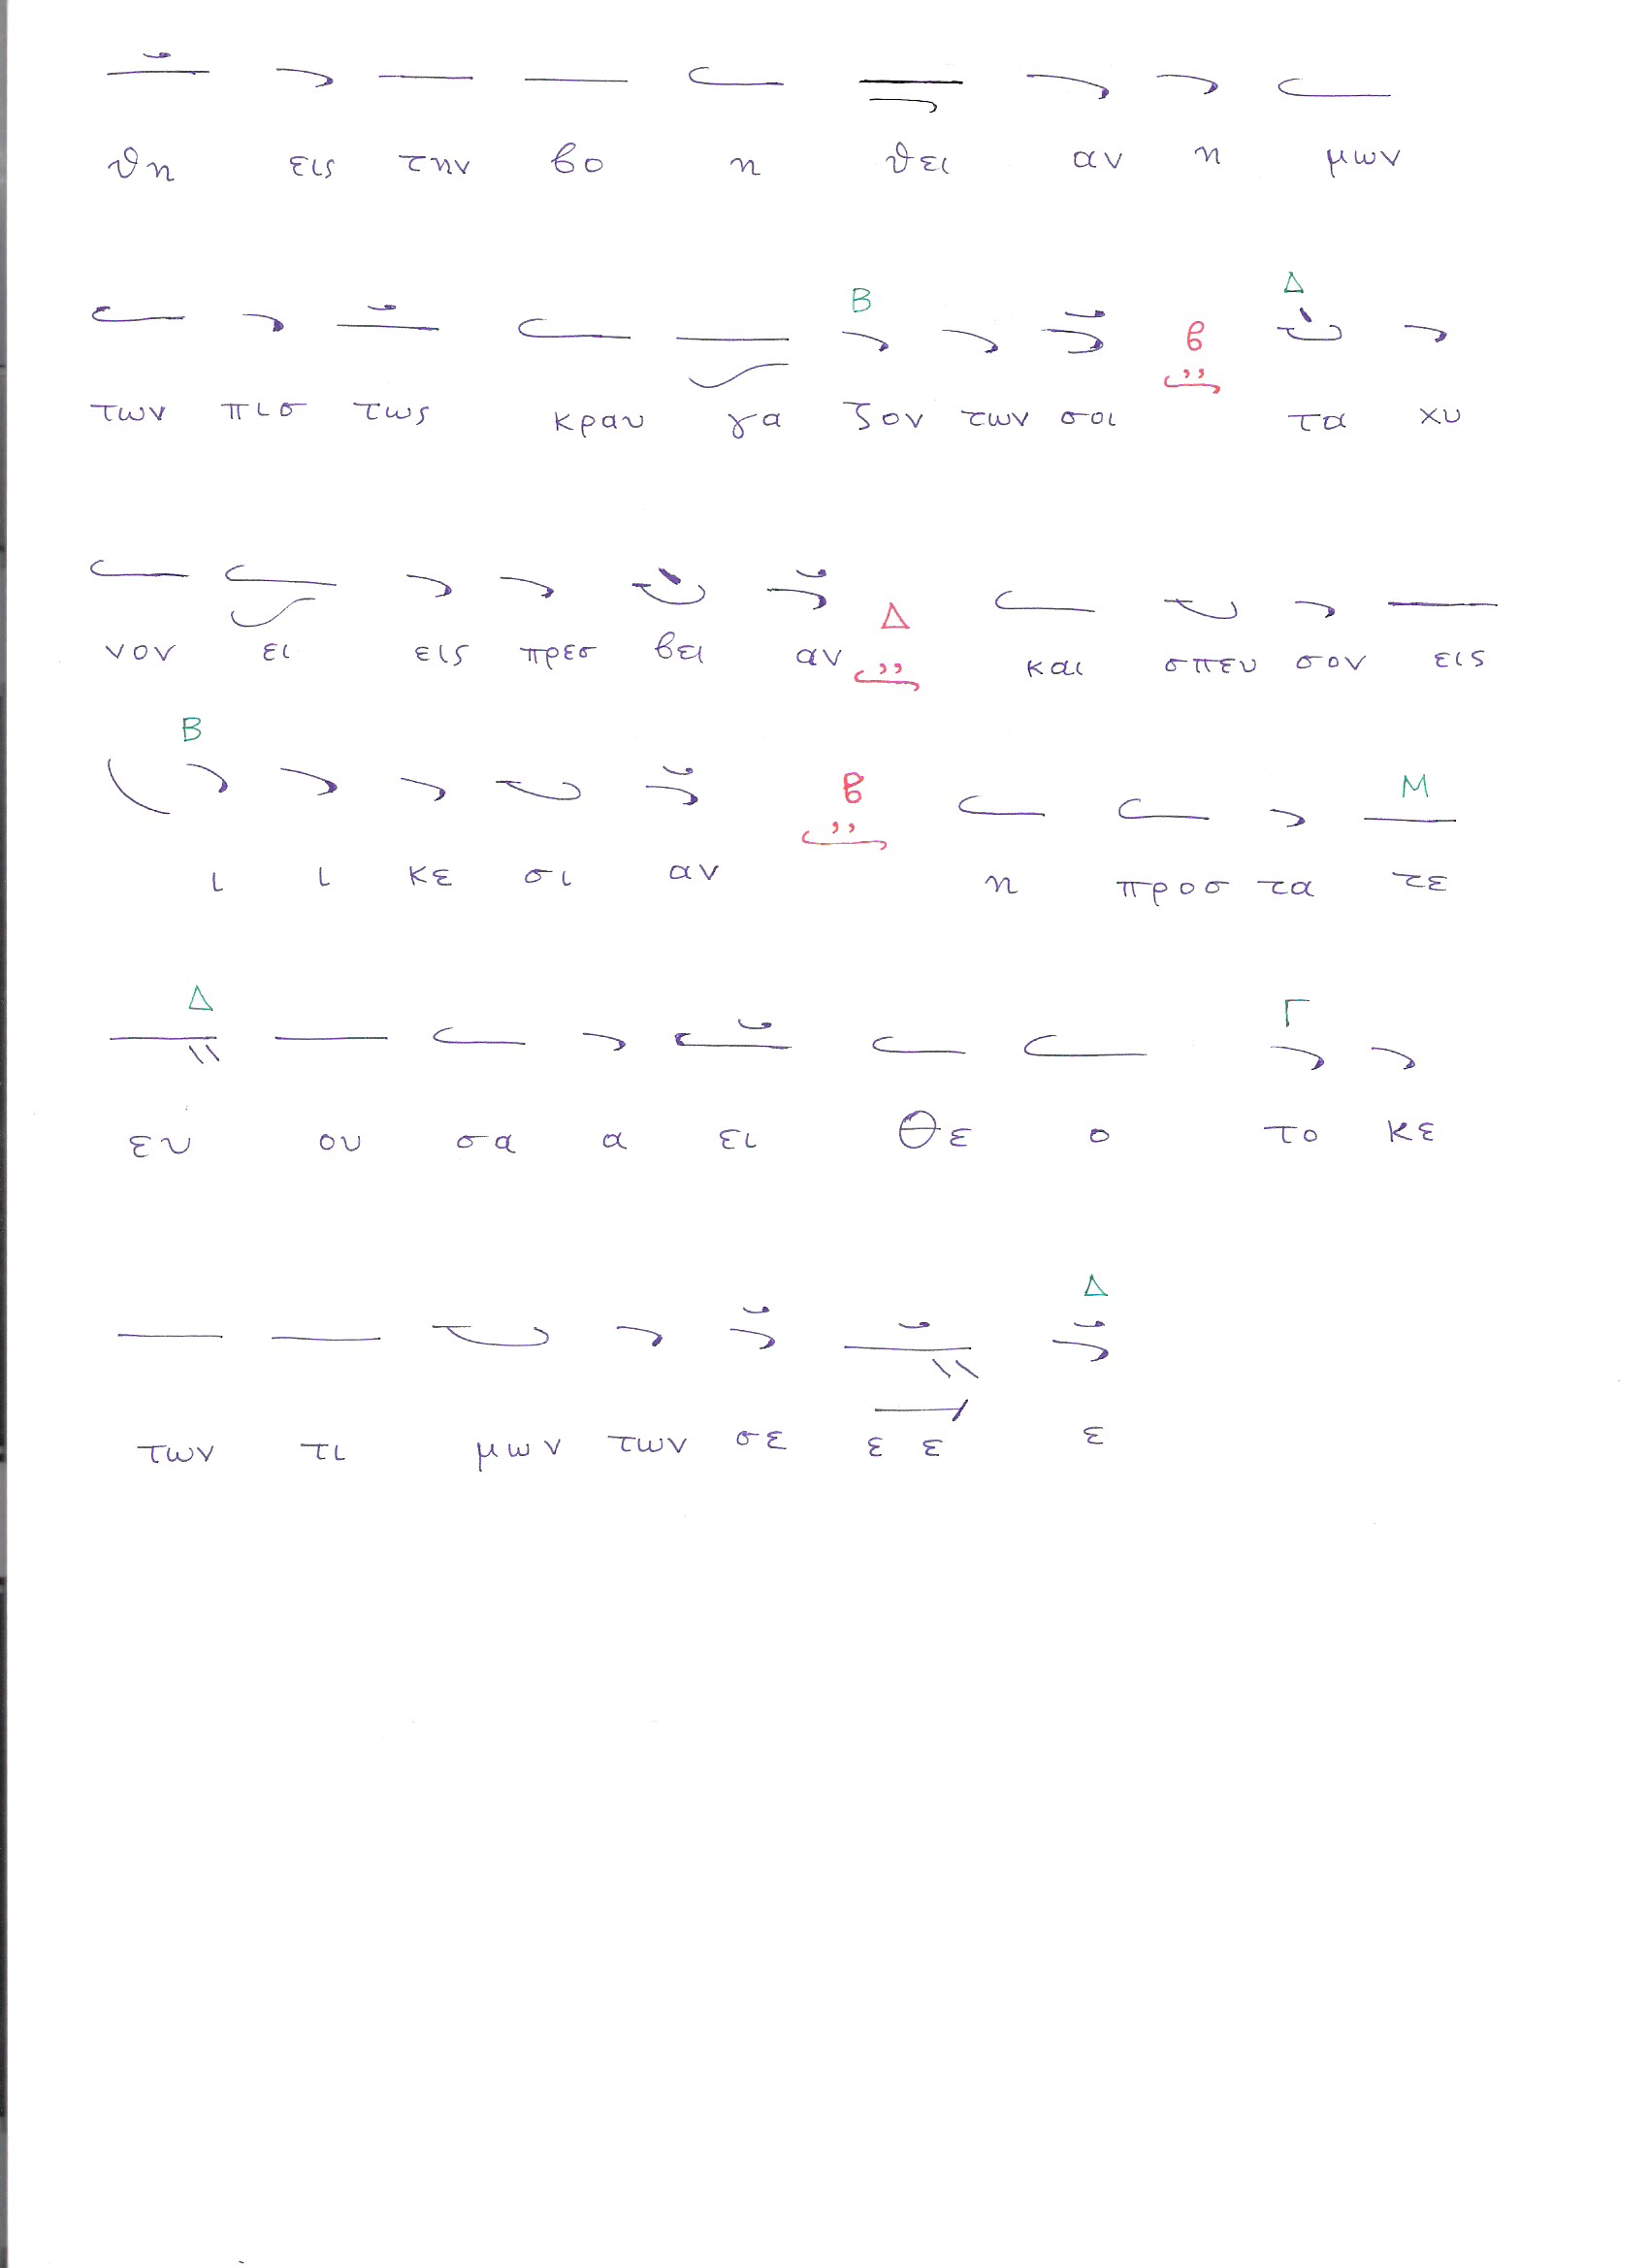 θη εις την βο η θει αν η μων
Β Δ
β
των πισ τως κραυ γα ζον των σοι τα χυ
Δ
νον ει εις πρεσ βει αν και σπευ σον εις
Β
β Μ
ι ι κε σι αν η προσ τα τε
Δ Γ
ευ ου σα α ει Θε ο το κε
Δ
των τι μων των σε ε ε ε